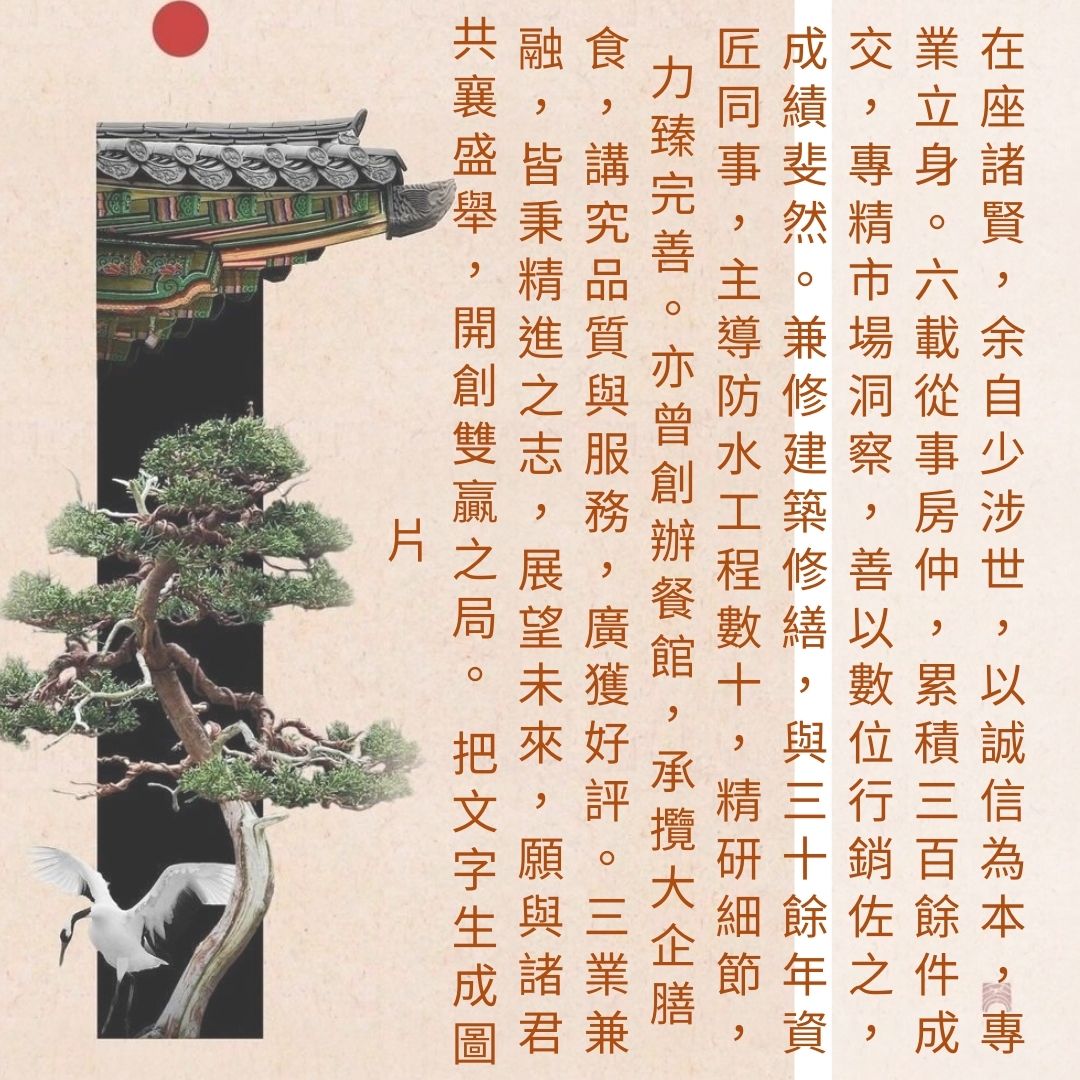 在座諸賢，余自少涉世，以誠信為本，專
業立身。六載從事房仲，累積三百餘件成
交，專精市場洞察，善以數位行銷佐之，
成績斐然。兼修建築修繕，與三十餘年資
匠同事，主導防水工程數十，精研細節，
力臻完善。亦曾創辦餐館，承攬大企膳
食，講究品質與服務，廣獲好評。三業兼
融，皆秉精進之志，展望未來，願與諸君
共襄盛舉，開創雙贏之局。把文字生成圖
片